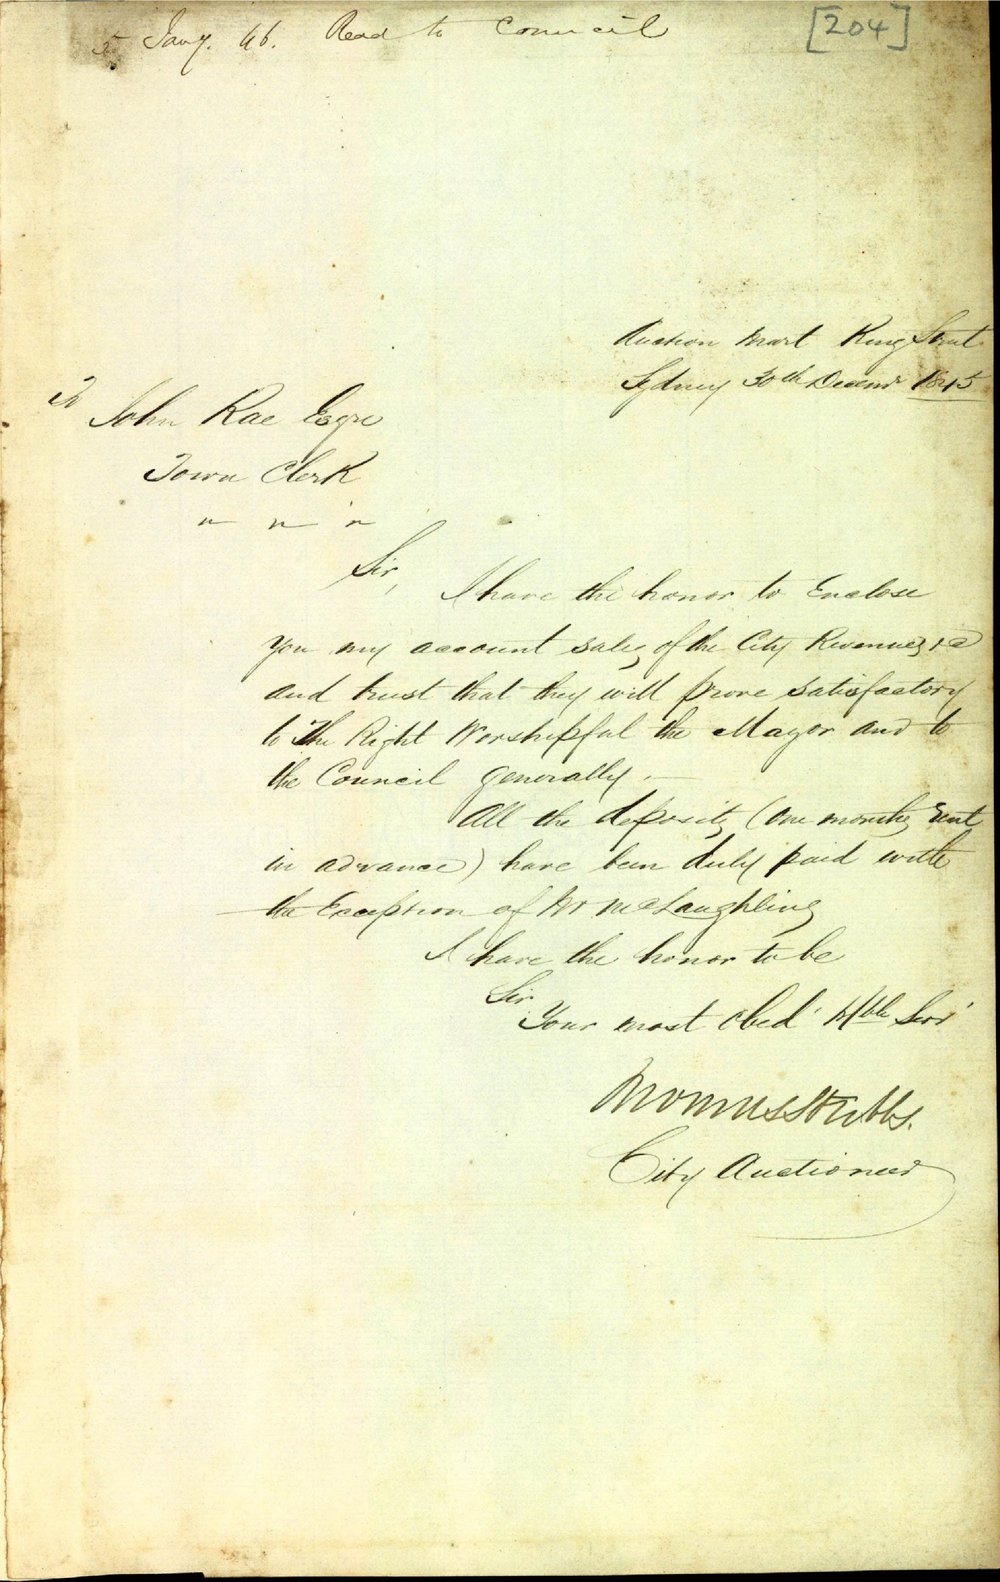 5 Jany. 46. Read to Council
[204]
Auction Mart King Street
Sydney 30th Decemr 1845
To
John Rae Esqre
Town Clerk
" " "
Sir,
I have the honor to Enclose
you my account sales of the City Revenues &c
and trust that they will prove satisfactory
to The Right Worshipful the Mayor and to
the Council generally. —
All the deposits (one months rent
in advance) have been duly paid with
the Exception of Mr McLaughling
I have the honor to be
Sir
Your most obedt Hble Servt
Thomas Stubbs.
City Auctioneer